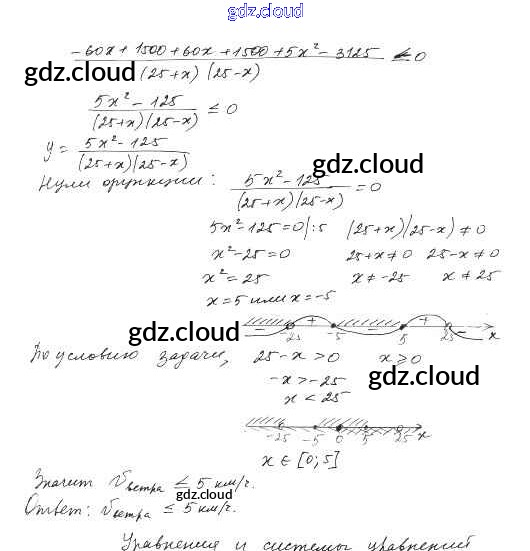 gdz.cloud
-60x + 1500 + 60x + 1500 + 5x² - 3125 / (25+x)(25-x) ≤ 0
gdz.cloud
5x² - 125 / (25+x)(25-x) ≤ 0
y = 5x² - 125 / (25+x)(25-x)
gdz.cloud
Нули функции: 5x² - 125 / (25+x)(25-x) = 0
5x² - 125 = 0 |:5 (25+x)(25-x) ≠ 0
x² - 25 = 0 25+x ≠ 0 25-x ≠ 0
x² = 25 x ≠ -25 x ≠ 25
x = 5 или x = -5
- + - + -
-25 -5 5 25 x
gdz.cloud gdz.cloud
По условию задачи, 25 - x > 0 x ≥ 0
-x > -25
gdz.cloud
x < 25
-25 -5 0 5 25 x
x ∈ [0; 5]
Значит Vветра ≤ 5 км/ч.
gdz.cloud
Ответ: Vветра ≤ 5 км/ч.
Уравнения и системы уравнений